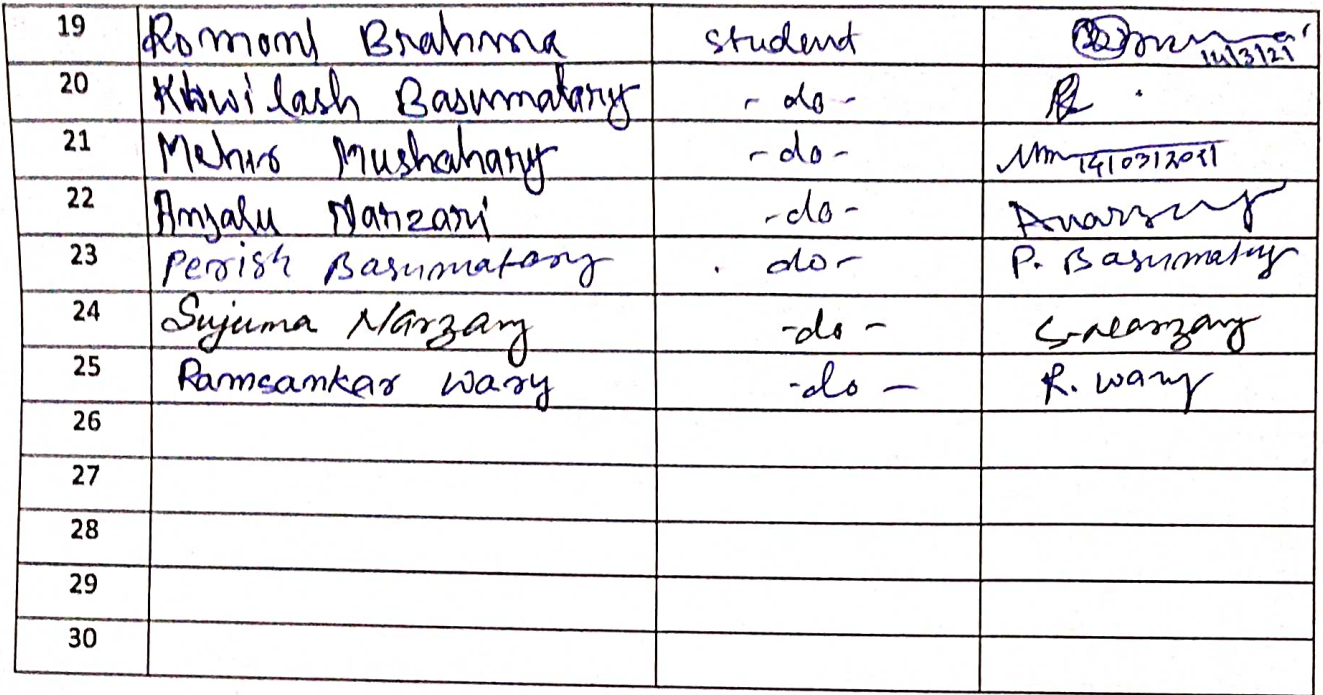 19 Romoni Brahma student 14/3/21
20 Khwilash Basumatary - do -
21 Mehir Mushahary - do - 14/03/2021
22 Anjalu Narzari - do -
23 Perish Basumatary . do - P. Basumatary
24 Sujuma Narzary - do - S. Narzary
25 Ramsankar Wary - do - R. Wary
26
27
28
29
30